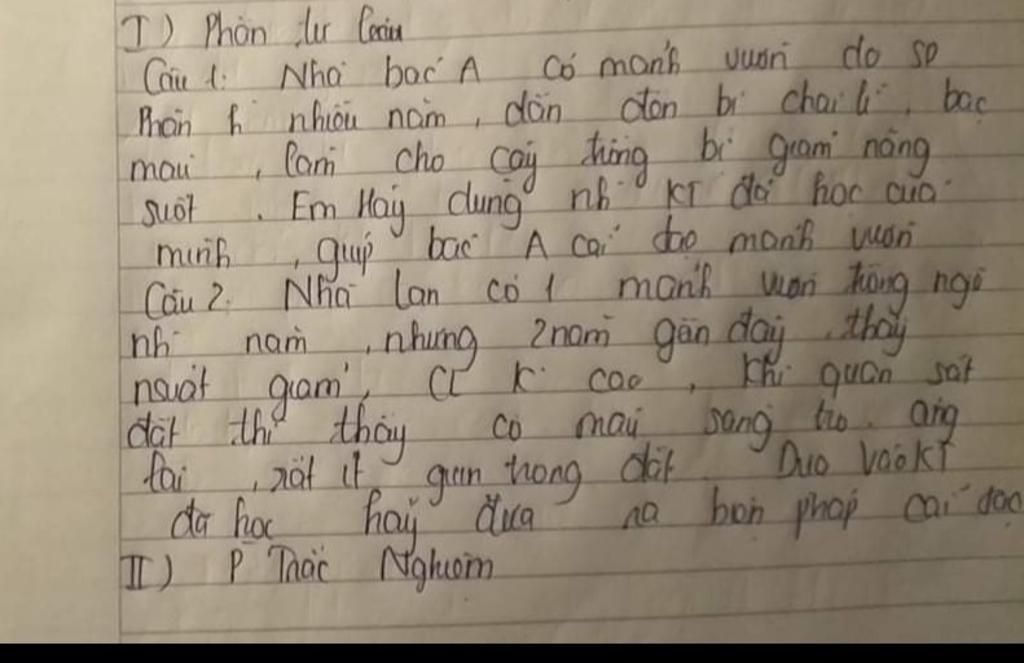 I) Phần tự luận
Câu 1: Nhà bác A có mảnh vườn do sd
Phân h nhiều năm, dẫn đến bị chai lì, bạc
màu, làm cho cây trồng bị giảm năng
suất. Em Hãy dùng nh KT đã học của
mình, giúp bác A cải tạo mảnh vườn
Câu 2: Nhà lan có 1 mảnh vườn trồng ngô
nh năm, nhưng 2 năm gần đây, thấy
nsuất giảm, CL K cao, khi quan sát
đất thì thấy có màu sang
rất ít giun trong đất. Dựa vào KT
đã học hãy đưa ra biện pháp cải tạo
II) P Trắc Nghiệm